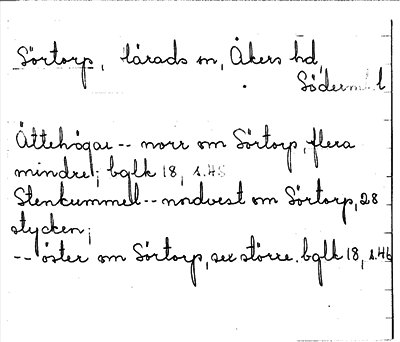 Sörtorp, Lärads sn, Åkers hd,
Söderm. l
Ättehögar -- norr om Sörtorp, flera
mindre; bglk 18, s.46
Stenkummel -- nordvest om Sörtorp, 28
stycken;
-- öster om Sörtorp, sex större. bglk 18, s.46